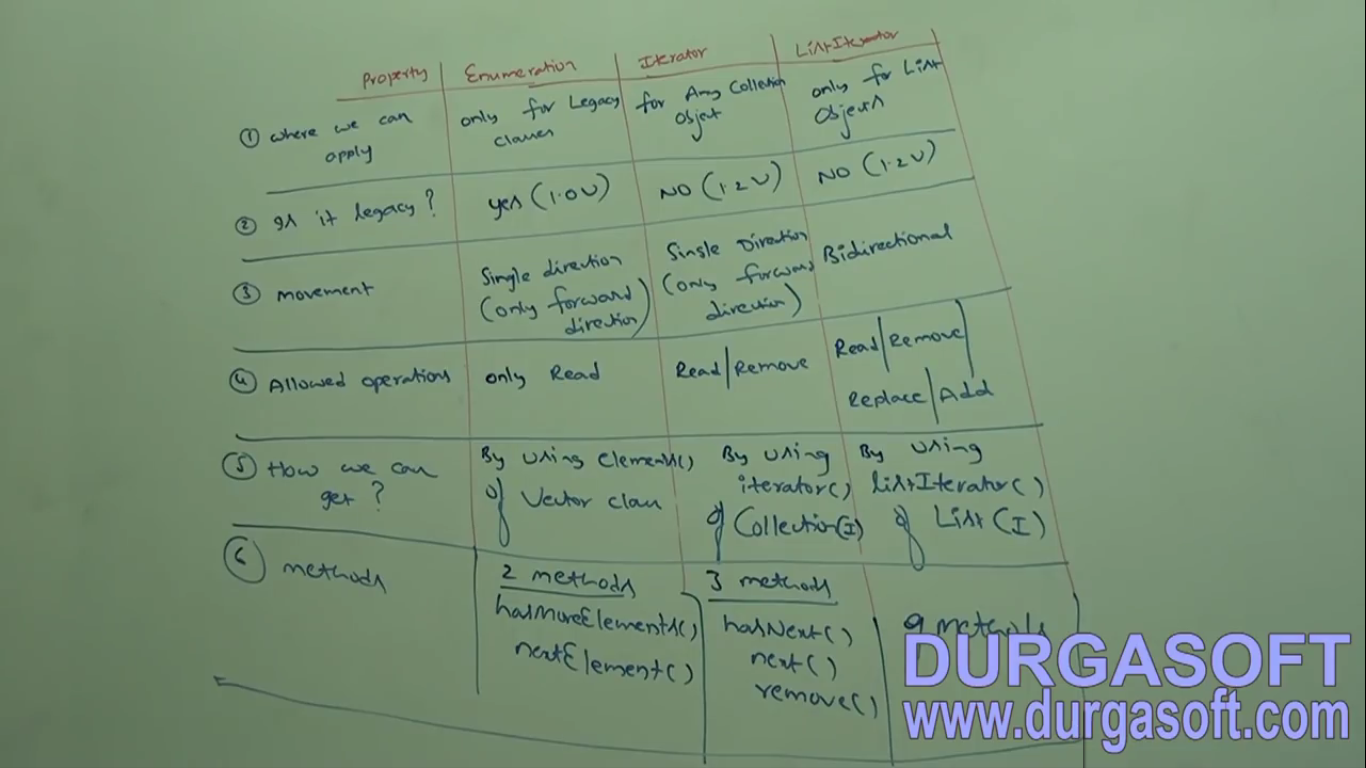 Property Enumeration Iterator ListIterator
① where we can apply
only for Legacy classes
for Any Collection Object
only for List Objects
② Is it legacy?
yes (1.0V)
NO (1.2V)
NO (1.2V)
③ movement
Single direction
(only forward
direction)
Single Direction
(only forward
direction)
Bidirectional
④ Allowed operations
only Read
Read/Remove
Read/Remove/
Replace/Add
⑤ How we can
get?
By using elements()
of Vector class
By using
iterator()
of Collection(I)
By using
listIterator()
of List(I)
⑥ methods
2 methods
hasMoreElements()
nextElement()
3 methods
hasNext()
next()
remove()
9 methods
DURGASOFT
www.durgasoft.com